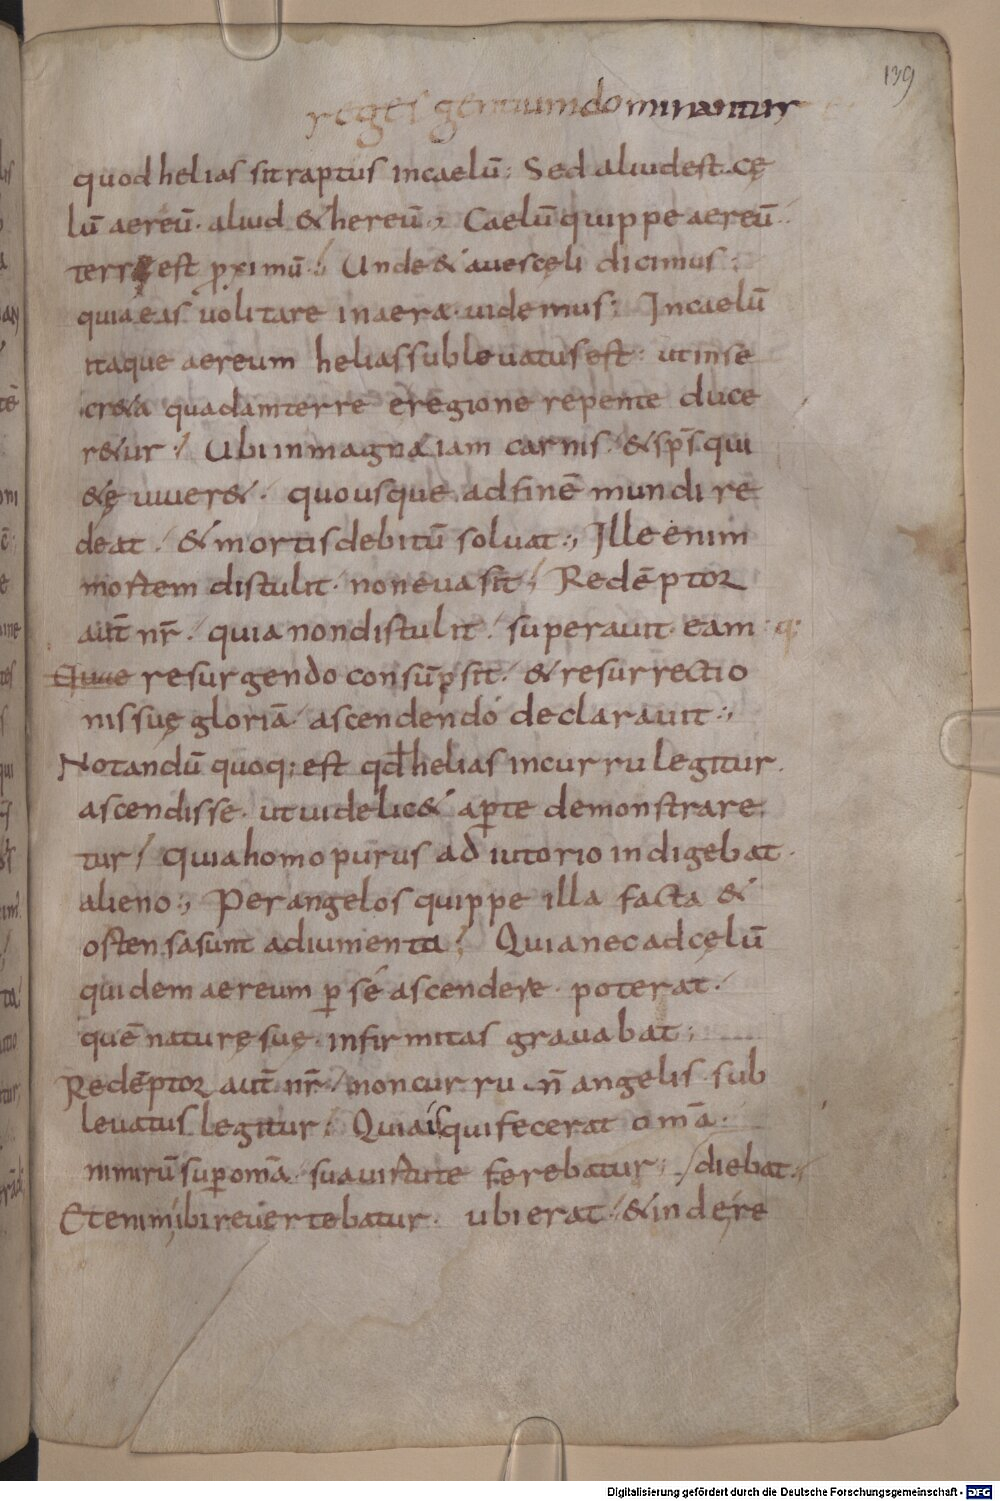 139
reges gentium dominantur
quod helias sit raptus in caelū; Sed aliud est cę
lū aereū. aliud & hereū; Caelū quippe aereū
terrę est ꝓximū; Unde & aues cęli dicimus;
quia eas uolitare in aera uidemus; In caelū
itaque aereum helias subleuatus est; ut in se
cr&a quadam terre eregione repente duce
r&ur; Ubi in magna iam carnis & sp̄s qui
&ę uiuer&. quo usque ad finē mundi re
deat. & mortis debitū soluat; Ille enim
mortem distulit. non euasit; Redēptor
aut̄ nr̄. quia non distulit. superauit eam q;
Eque resurgendo consūpsit. & resurrectio
nis suę gloriā ascendendo declarauit;
Notandū quoq; est qđ helias in curru legitur.
ascendisse. ut uidelic& aꝑte demonstrare
tur; quia homo purus adiutorio indigebat.
alieno; Per angelos quippe illa facta &
ostensa sunt adiumenta; Quia nec ad cęlū
quidem aereum ꝑ se ascendere poterat.
quē naturę suę infirmitas grauabat;
Redēptor aut̄ nr̄. non curru n̄ angelis sub
leuatus legitur; Quia is qui fecerat om̄a.
nimirū suꝑ om̄a. sua uirtute ferebatur; diebat.
Etenim ibi reuertebatur. ubi erat. & inde re
Digitalisierung gefördert durch die Deutsche Forschungsgemeinschaft - DFG